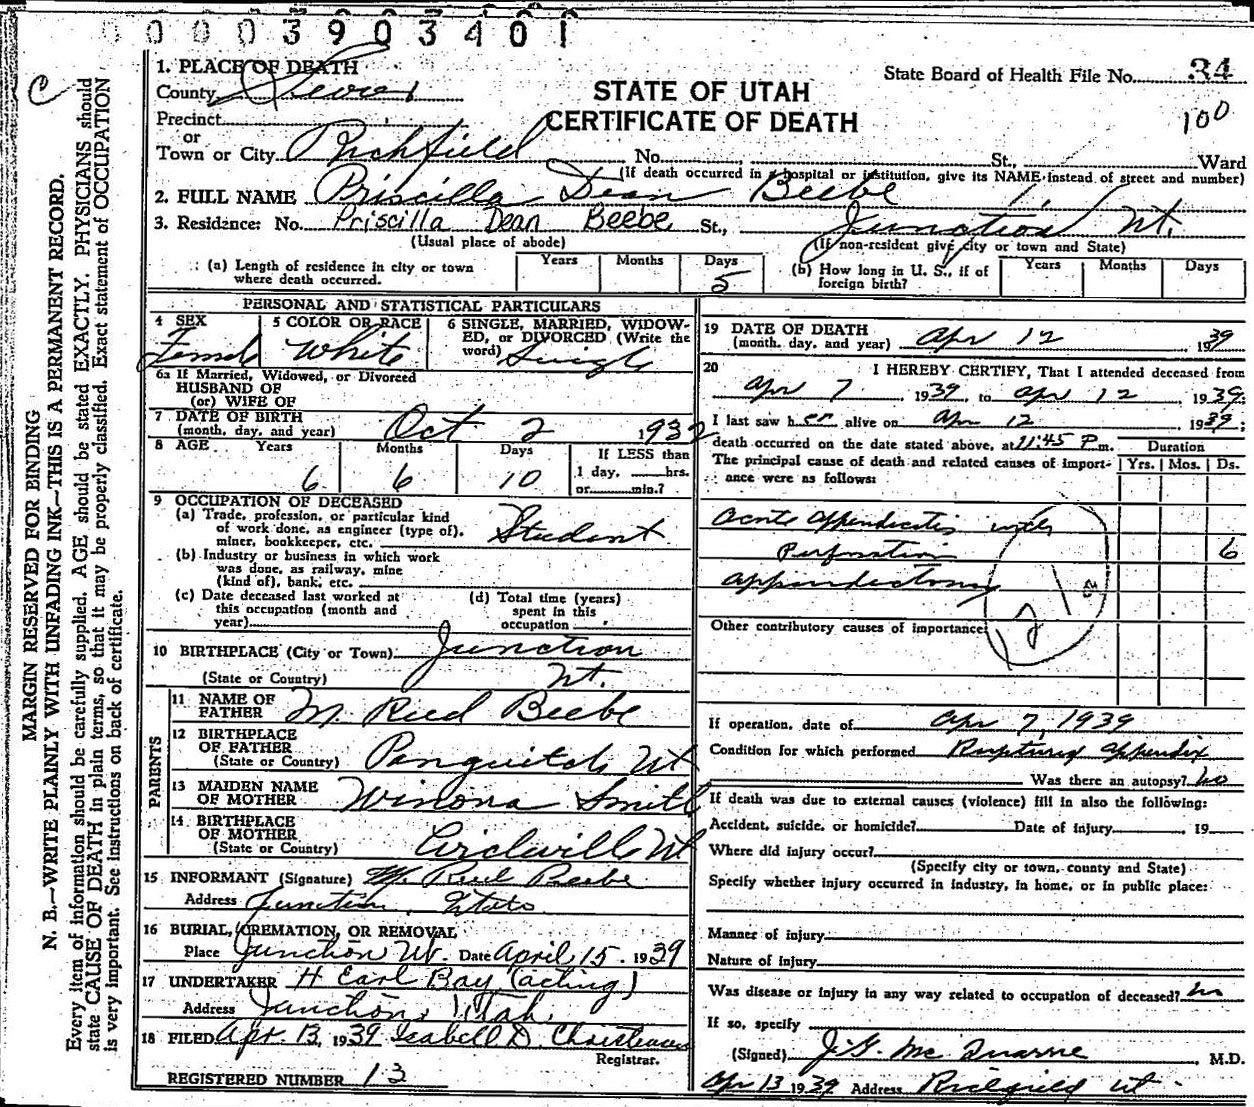 000390340 1
C
MARGIN RESERVED FOR BINDING
N. B.—WRITE PLAINLY WITH UNFADING INK—THIS IS A PERMANENT RECORD.
Every item of information should be carefully supplied. AGE should be stated EXACTLY. PHYSICIANS should
state CAUSE OF DEATH in plain terms, so that it may be properly classified. Exact statement of OCCUPATION
is very important. See instructions on back of certificate.
1. PLACE OF DEATH
County Sevier
State Board of Health File No. 34
STATE OF UTAH
CERTIFICATE OF DEATH
100
Precinct
or
Town or City Richfield No. St., Ward
(If death occurred in a hospital or institution, give its NAME instead of street and number)
2. FULL NAME Priscilla Dean Beebe
3. Residence: No. Priscilla Dean Beebe St., Junction Ut.
(Usual place of abode) (If non-resident give city or town and State)
(a) Length of residence in city or town where death occurred. Years Months Days 5
(b) How long in U. S., if of foreign birth? Years Months Days
PERSONAL AND STATISTICAL PARTICULARS
4 SEX Female
5 COLOR OR RACE White
6 SINGLE, MARRIED, WIDOWED, or DIVORCED (Write the word) Single
6a If Married, Widowed, or Divorced
HUSBAND OF
(or) WIFE OF
7 DATE OF BIRTH
(month, day, and year) Oct 2 1932
8 AGE Years Months Days If LESS than
6 6 10 1 day, hrs.
or min.?
9 OCCUPATION OF DECEASED
(a) Trade, profession, or particular kind
of work done, as engineer (type of),
miner, bookkeeper, etc. Student
(b) Industry or business in which work
was done, as railway, mine
(kind of), bank, etc.
(c) Date deceased last worked at
this occupation (month and
year)
(d) Total time (years)
spent in this
occupation
10 BIRTHPLACE (City or Town) Junction
(State or Country) Ut.
PARENTS
11 NAME OF
FATHER M. Reed Beebe
12 BIRTHPLACE
OF FATHER
(State or Country) Panguitch Ut
13 MAIDEN NAME
OF MOTHER Winona Smith
14 BIRTHPLACE
OF MOTHER
(State or Country) Circleville Ut
15 INFORMANT (Signature) M. Reed Beebe
Address Junction, Utah
16 BURIAL, CREMATION, OR REMOVAL
Place Junction Ut. Date April 15 - 1939
17 UNDERTAKER H Earl Bay (acting)
Address Junction, Utah.
18 FILED Apr. 13, 1939 Isabell D. Christensen
Registrar.
REGISTERED NUMBER 13
19 DATE OF DEATH
(month, day, and year) Apr 12, 1939
20 I HEREBY CERTIFY, That I attended deceased from
Apr 7, 1939, to Apr 12, 1939.
I last saw her alive on Apr 12, 1939;
death occurred on the date stated above, at 11:45 P.m.
The principal cause of death and related causes of importance were as follows:
Duration
Yrs. Mos. Ds.
acute appendicitis with
Perforation 6
appendectomy
121
Other contributory causes of importance:
If operation, date of Apr 7, 1939
Condition for which performed Ruptured appendix
Was there an autopsy? no
If death was due to external causes (violence) fill in also the following:
Accident, suicide, or homicide? Date of injury , 19
Where did injury occur?
(Specify city or town, county and State)
Specify whether injury occurred in industry, in home, or in public place:
Manner of injury
Nature of injury
Was disease or injury in any way related to occupation of deceased? no
If so, specify
(Signed) J. G. McQuarrie, M.D.
Apr 13 1939 Address Richfield Ut.